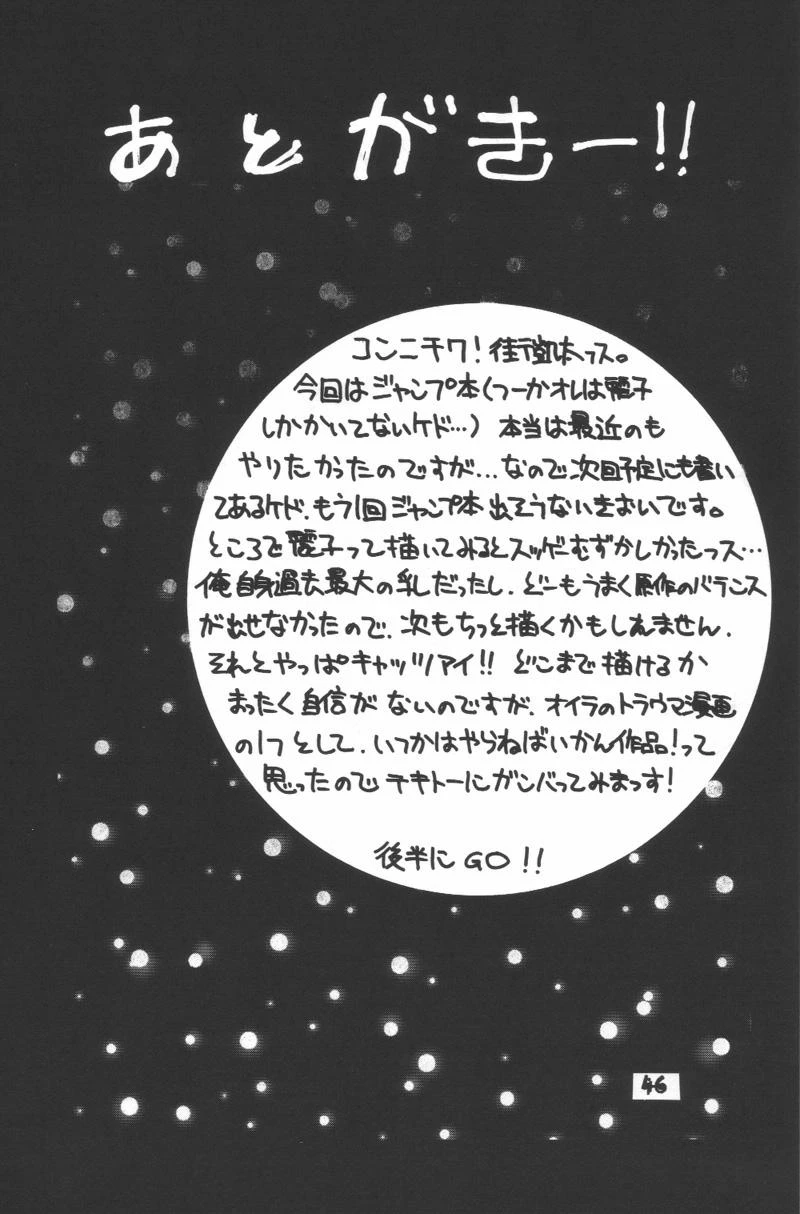 あとがきー!!
コンニチワ! 街道はっス。
今回はジャンプ本(つーかオレは麗子
しかかいてないケド…) 本当は最近のも
やりたかったのですが…なので次回予定にも書い
てあるケド、もう1回ジャンプ本出そうないきおいです。
ところで麗子って描いてみるとスッゲーむずかしかったっス…
俺自身過去最大の乳だったし、どーもうまく原作のバランス
が出せなかったので、次もちっと描くかもしれません。
それとやっぱキャッツアイ!! どこまで描けるか
まったく自信がないのですが、オイラのトラウマ漫画
の1つとして、いつかはやらねばいかん作品!って
思ったのでテキトーにガンバってみまっす!
後半にGO!!
46